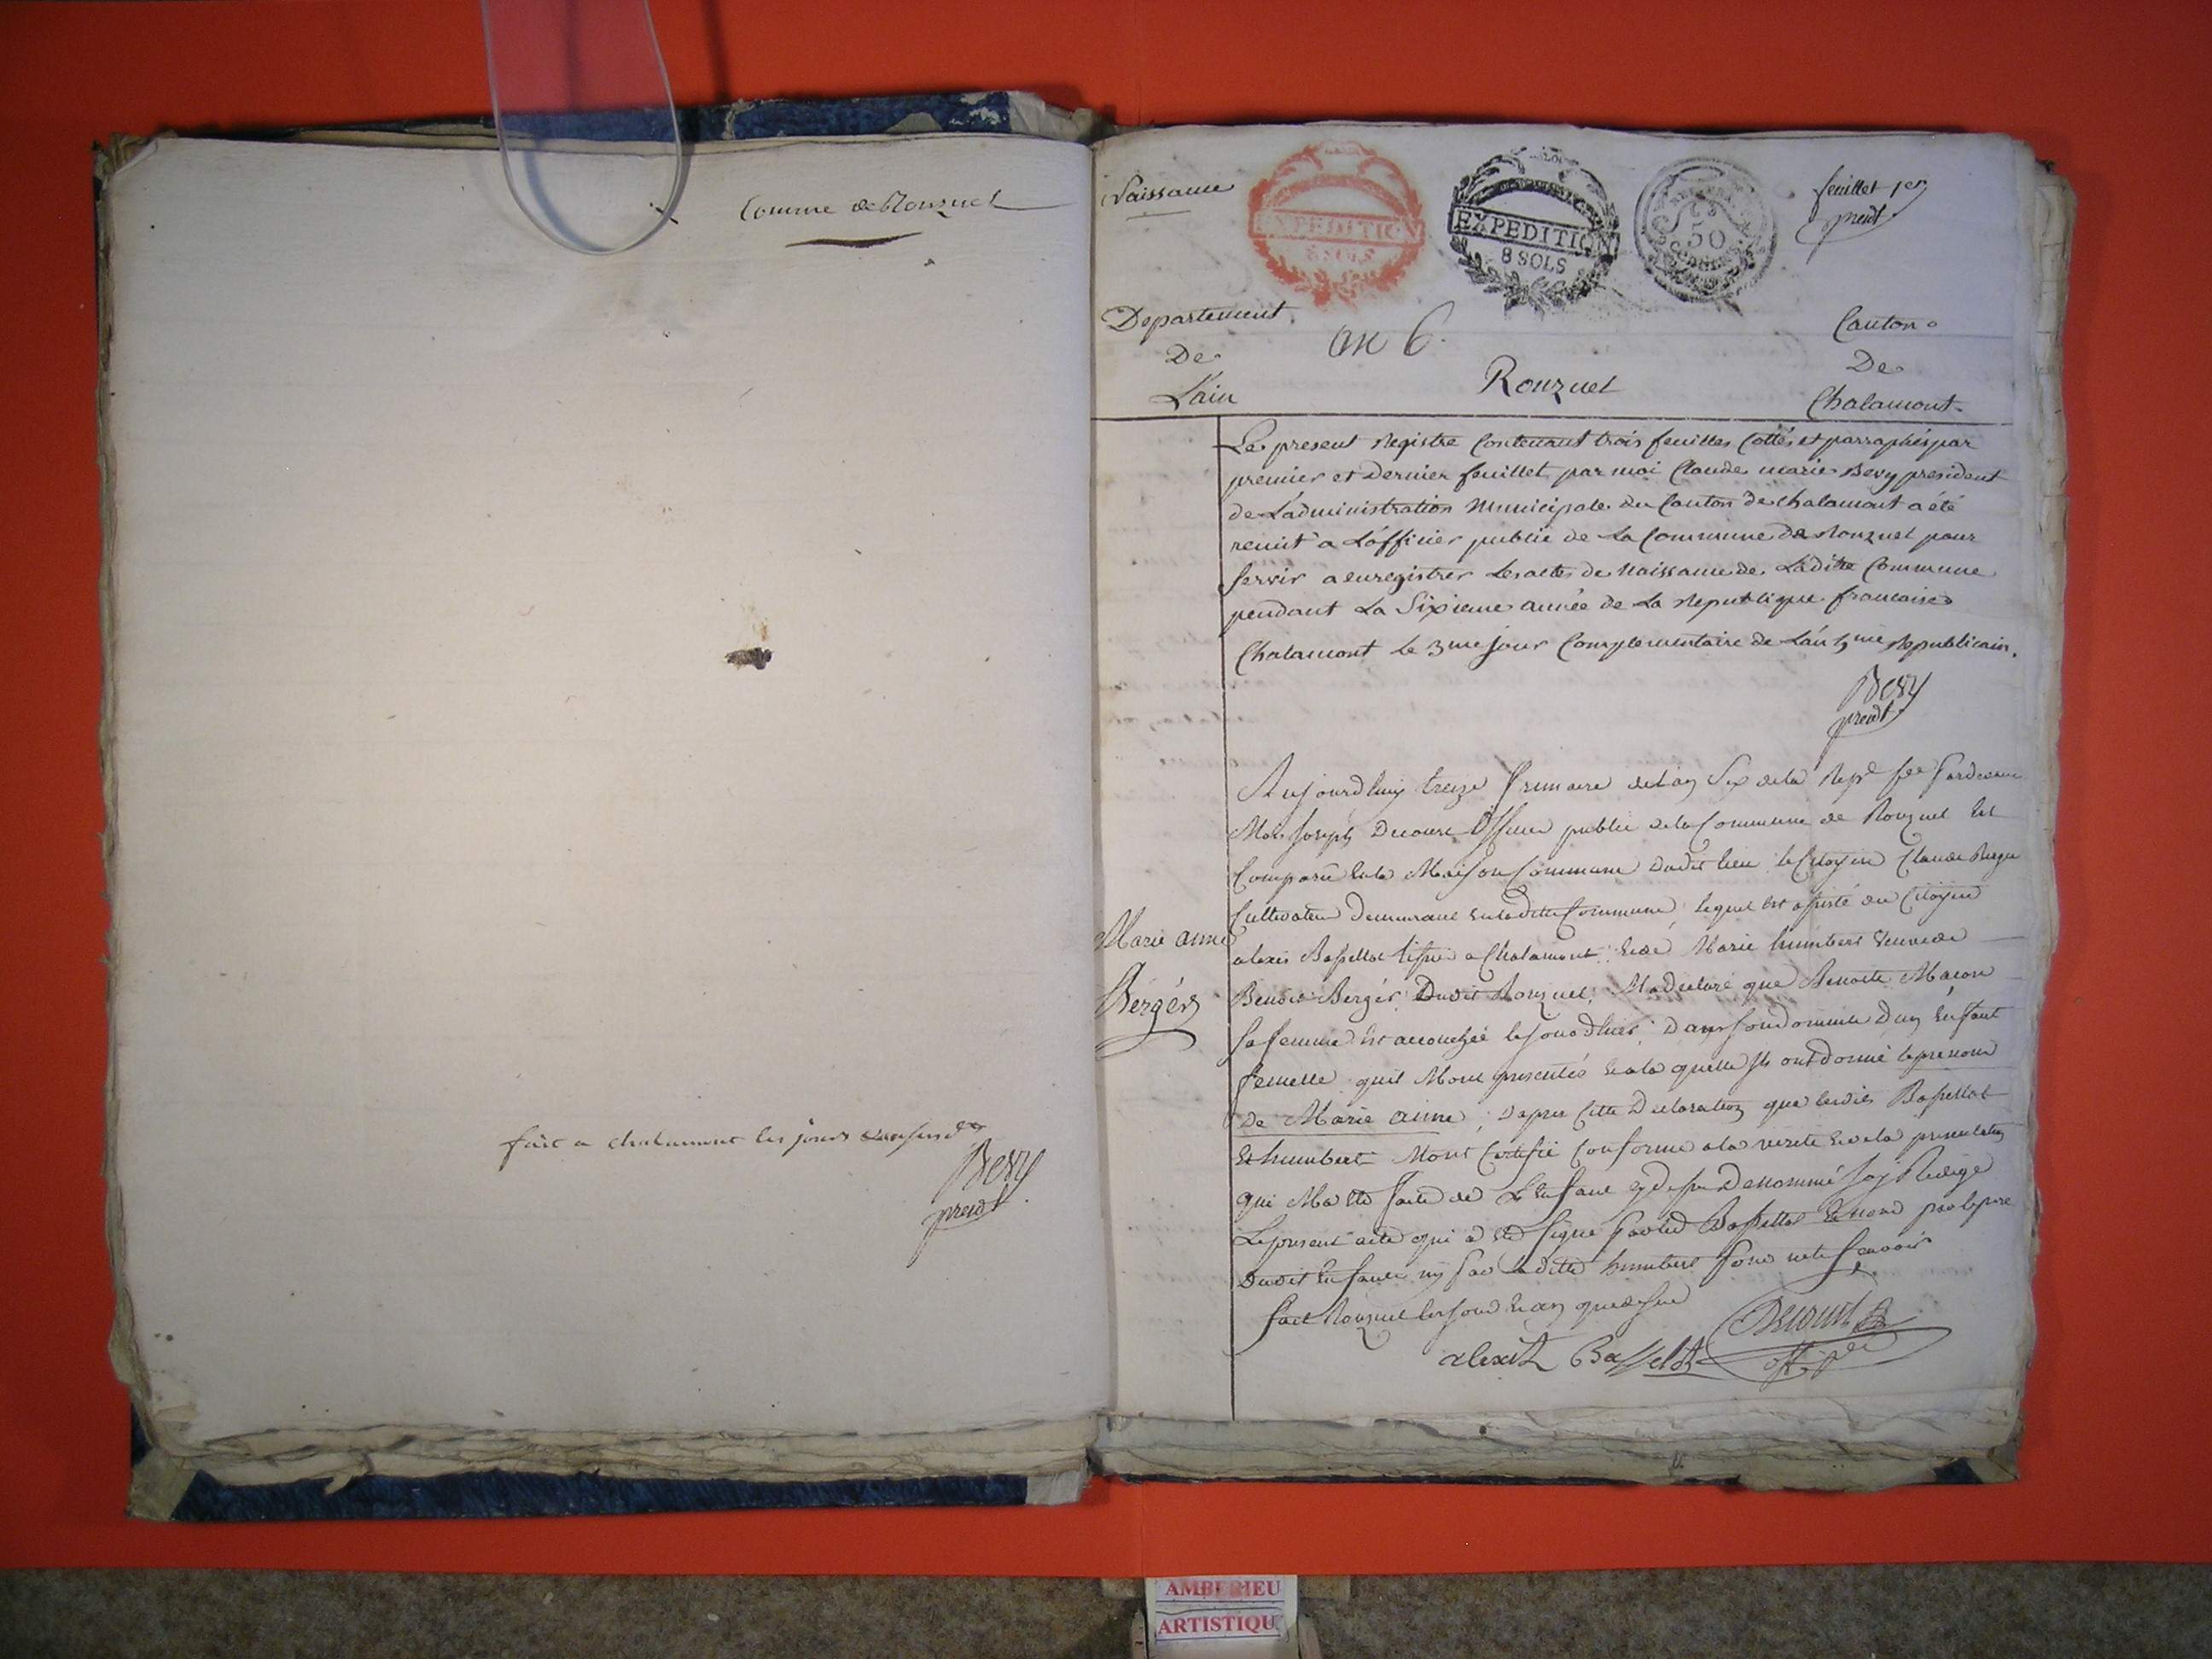 Comune de Ronzuel
fait a chalamont les jours et an susd.
Bevy
presdt.
Naissance
EXPEDITION
8 SOLS
EXPEDITION
8 SOLS
50
feuillet 1er
presdt
Departement
De
L'ain
an 6.
Ronzuel
Canton
De
Chalamont.
Le present Registre Contenant trois feuilles Cottés et parraphés par
premier et Dernier feuillet par moi Claude marie Bevy president
de L'administration Municipale du Canton de Chalamont a été
remit a L'officier public de La Commune de Ronzuel pour
servir a enregistrer Les actes de Naissance de Ladite Commune
pendant La Sixieme année de La Republique francaise
Chalamont Le 3me jour Complementaire de L'an 5me Republicain.
Bevy
presdt
Aujourdhuy treize frimaire de l'an Six de la Repe fse Pardevant
Moi Joseph Decourt Officier public de la Commune de Ronzuel Est
Comparu en la Maison Commune dudit lieu le Citoyen Claude Berger
Cultivateur demeurant en ladite Commune, lequel est assisté du Citoyen
alexis Bassellot a Chalamont et de Marie humbert veuve de
Benoit Bergér Dudit Ronzuel, M'a declaré que Benoite Macon
sa femme est accouchée le jour d'hier dans son domicile d'un Enfant
femelle quil M'ont presentés et a la quelle ils ont donné le prenom
de Marie anne, d'apres Cette Declaration que lesdits Bassellot
Et humbert M'ont Certifié Conforme a la verité et de la presentation
qui M'a eté faite de L'Enfant cy dessus Denommé j'ay Redigé
Le present acte qui a eté signé par led Bassellot Et non par le pere
Dudit Enfant ny par ladite humbert pour ne le scavoir
fait Ronzuel les jour et an que dessus
Marie anne
Bergér
alexis Basselot
Decourt
off. pic
AMBERIEU
ARTISTIQU